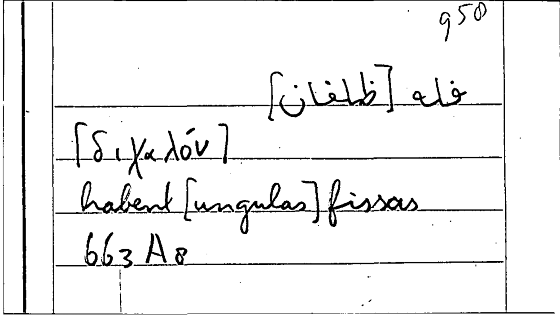 950
فله [ظلفان]
[διχαλόν]
habent [ungulas] fissas
663 A 8